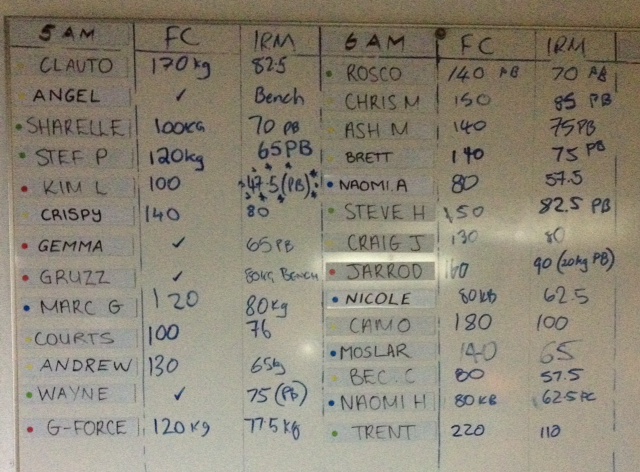 5 AM FC 1RM 6 AM FC 1RM
CLAUTO 170kg 82.5 ROSCO 140 PB 70 PB
ANGEL ✓ Bench CHRIS M 150 85 PB
SHARELLE 100KG 70 PB ASH M 140 75PB
STEF P 120kg 65PB BRETT 140 75 PB
KIM L 100 47.5 (PB) NAOMI.A 80 57.5
CRISPY 140 80 STEVE H 150 82.5 PB
GEMMA ✓ 65PB CRAIG J 130 80
GRUZZ ✓ 80KG BENCH JARROD 160 90 (20kg PB)
MARC G 120 80kg NICOLE 80KB 62.5
COURTS 100 76 CAMO 180 100
ANDREW 130 65kg MOSLAR 140 65
WAYNE ✓ 75 (PB) BEC.C 80 57.5
G-FORCE 120kg 77.5kg NAOMI H 80KB 62.5PC
TRENT 220 110